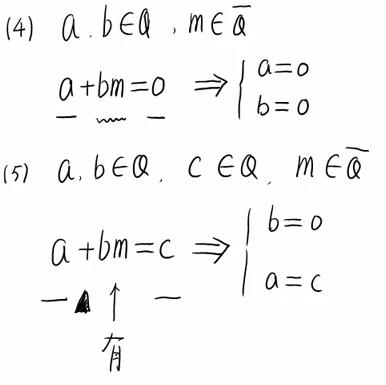 (4) a, b∈Q, m∈Q̅
a+bm=0 ⇒ { a=0
b=0
(5) a, b∈Q, c∈Q, m∈Q̅
a+bm=c ⇒ { b=0
a=c
有